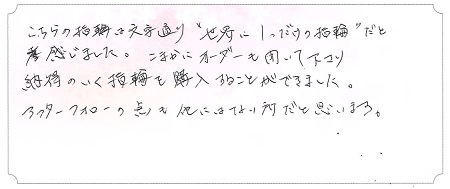 こちらの指輪は文字通り“世界に1つだけの指輪”だと
感じました。こまかにオーダーも聞いて下さり
納得のいく指輪を購入することができました。
アフターフォローの点も他にはない所だと思います。